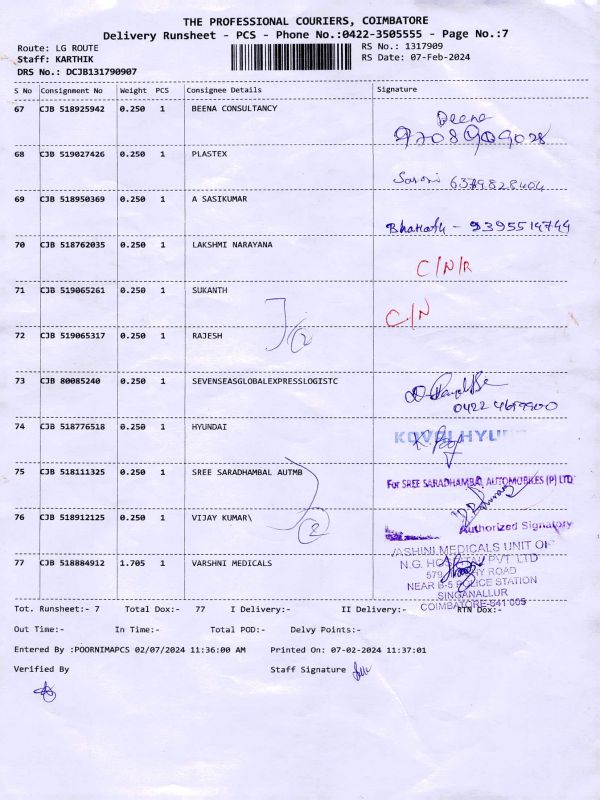 THE PROFESSIONAL COURIERS, COIMBATORE
Delivery Runsheet - PCS - Phone No.:0422-3505555 - Page No.:7
Route: LG ROUTE RS No.: 1317909
Staff: KARTHIK RS Date: 07-Feb-2024
DRS No.: DCJB131790907
S No Consignment No Weight PCS Consignee Details Signature
67 CJB 518925942 0.250 1 BEENA CONSULTANCY Beena
68 CJB 519027426 0.250 1 PLASTEX
69 CJB 518950369 0.250 1 A SASIKUMAR Bharath - 9395514744
70 CJB 518762035 0.250 1 LAKSHMI NARAYANA C/N/R
71 CJB 519065261 0.250 1 SUKANTH C/N
(2)
72 CJB 519065317 0.250 1 RAJESH
73 CJB 80085240 0.250 1 SEVENSEASGLOBALEXPRESSLOGISTC
74 CJB 518776518 0.250 1 HYUNDAI
75 CJB 518111325 0.250 1 SREE SARADHAMBAL AUTMB For SREE SARADHAMBAL AUTOMOBILES (P) LTD
76 CJB 518912125 0.250 1 VIJAY KUMAR\ (2) Authorized Signatory
77 CJB 518884912 1.705 1 VARSHNI MEDICALS
ASHINI MEDICALS UNIT OF
N.G. PVT LTD
ROAD
NEAR B-5 POLICE STATION
SINGANALLUR
COIMBATORE-641 005
Tot. Runsheet:- 7 Total Dox:- 77 I Delivery:- II Delivery:- RTN Dox:-
Out Time:- In Time:- Total POD:- Delvy Points:-
Entered By :POORNIMAPCS 02/07/2024 11:36:00 AM Printed On: 07-02-2024 11:37:01
Verified By Staff Signature